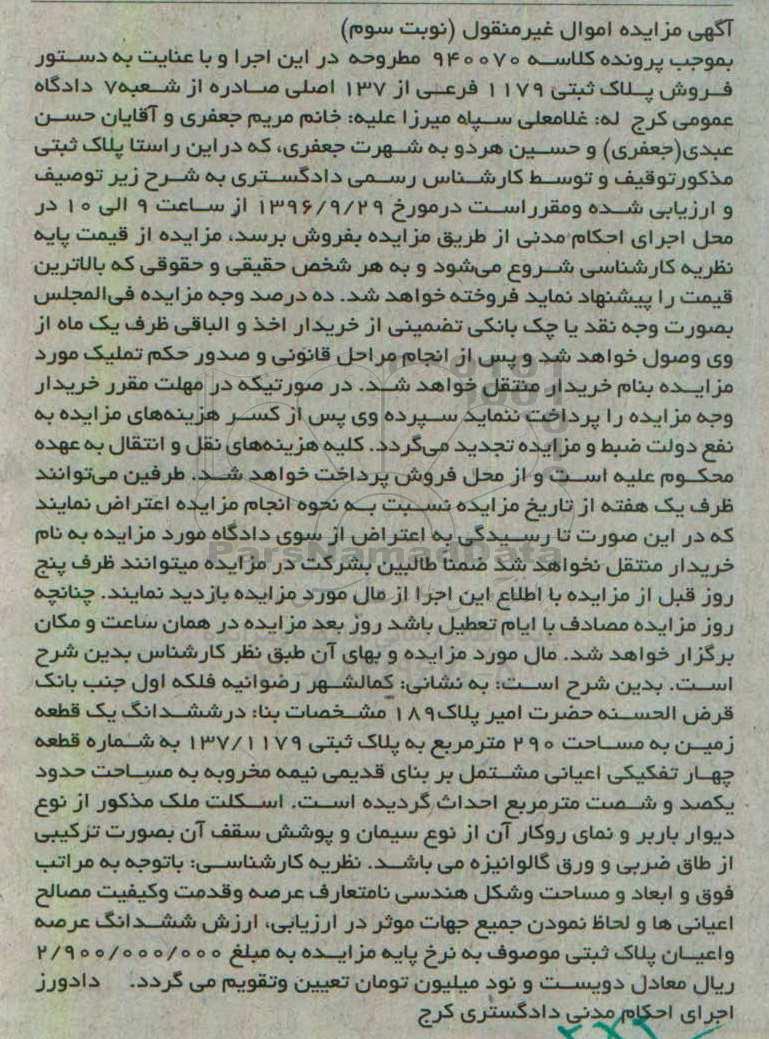 آگهی مزایده اموال غیرمنقول (نوبت سوم)
بموجب پرونده کلاسه ۹۴۰۰۷۰ مطروحه در این اجرا و با عنایت به دستور
فروش پلاک ثبتی ۱۱۷۹ فرعی از ۱۳۷ اصلی صادره از شعبه۷ دادگاه
عمومی کرج له: غلامعلی سپاه میرزا علیه: خانم مریم جعفری و آقایان حسن
عبدی(جعفری) و حسین هردو به شهرت جعفری، که دراین راستا پلاک ثبتی
مذکورتوقیف و توسط کارشناس رسمی دادگستری به شرح زیر توصیف
و ارزیابی شده ومقرراست درمورخ ۱۳۹۶/۹/۲۹ از ساعت ۹ الی ۱۰ در
محل اجرای احکام مدنی از طریق مزایده بفروش برسد، مزایده از قیمت پایه
نظریه کارشناسی شروع می‌شود و به هر شخص حقیقی و حقوقی که بالاترین
قیمت را پیشنهاد نماید فروخته خواهد شد. ده درصد وجه مزایده فی‌المجلس
بصورت وجه نقد یا چک بانکی تضمینی از خریدار اخذ و الباقی ظرف یک ماه از
وی وصول خواهد شد و پس از انجام مراحل قانونی و صدور حکم تملیک مورد
مزایده بنام خریدار منتقل خواهد شد. در صورتیکه در مهلت مقرر خریدار
وجه مزایده را پرداخت ننماید سپرده وی پس از کسر هزینه‌های مزایده به
نفع دولت ضبط و مزایده تجدید می‌گردد. کلیه هزینه‌های نقل و انتقال به عهده
محکوم علیه است و از محل فروش پرداخت خواهد شد. طرفین می‌توانند
ظرف یک هفته از تاریخ مزایده نسبت به نحوه انجام مزایده اعتراض نمایند
که در این صورت تا رسیدگی به اعتراض از سوی دادگاه مورد مزایده به نام
خریدار منتقل نخواهد شد ضمنا طالبین بشرکت در مزایده میتوانند ظرف پنج
روز قبل از مزایده با اطلاع این اجرا از مال مورد مزایده بازدید نمایند. چنانچه
روز مزایده مصادف با ایام تعطیل باشد روز بعد مزایده در همان ساعت و مکان
برگزار خواهد شد. مال مورد مزایده و بهای آن طبق نظر کارشناس بدین شرح
است. بدین شرح است: به نشانی: کمالشهر رضوانیه فلکه اول جنب بانک
قرض الحسنه حضرت امیر پلاک۱۸۹ مشخصات بنا: درششدانگ یک قطعه
زمین به مساحت ۲۹۰ مترمربع به پلاک ثبتی ۱۳۷/۱۱۷۹ به شماره قطعه
چهار تفکیکی اعیانی مشتمل بر بنای قدیمی نیمه مخروبه به مساحت حدود
یکصد و شصت مترمربع احداث گردیده است. اسکلت ملک مذکور از نوع
دیوار باربر و نمای روکار آن از نوع سیمان و پوشش سقف آن بصورت ترکیبی
از طاق ضربی و ورق گالوانیزه می باشد. نظریه کارشناسی: باتوجه به مراتب
فوق و ابعاد و مساحت وشکل هندسی نامتعارف عرصه وقدمت وکیفیت مصالح
اعیانی ها و لحاظ نمودن جمیع جهات موثر در ارزیابی، ارزش ششدانگ عرصه
واعیان پلاک ثبتی موصوف به نرخ پایه مزایده به مبلغ ۲/۹۰۰/۰۰۰/۰۰۰
ریال معادل دویست و نود میلیون تومان تعیین وتقویم می گردد. دادورز
اجرای احکام مدنی دادگستری کرج
ParsNamadData